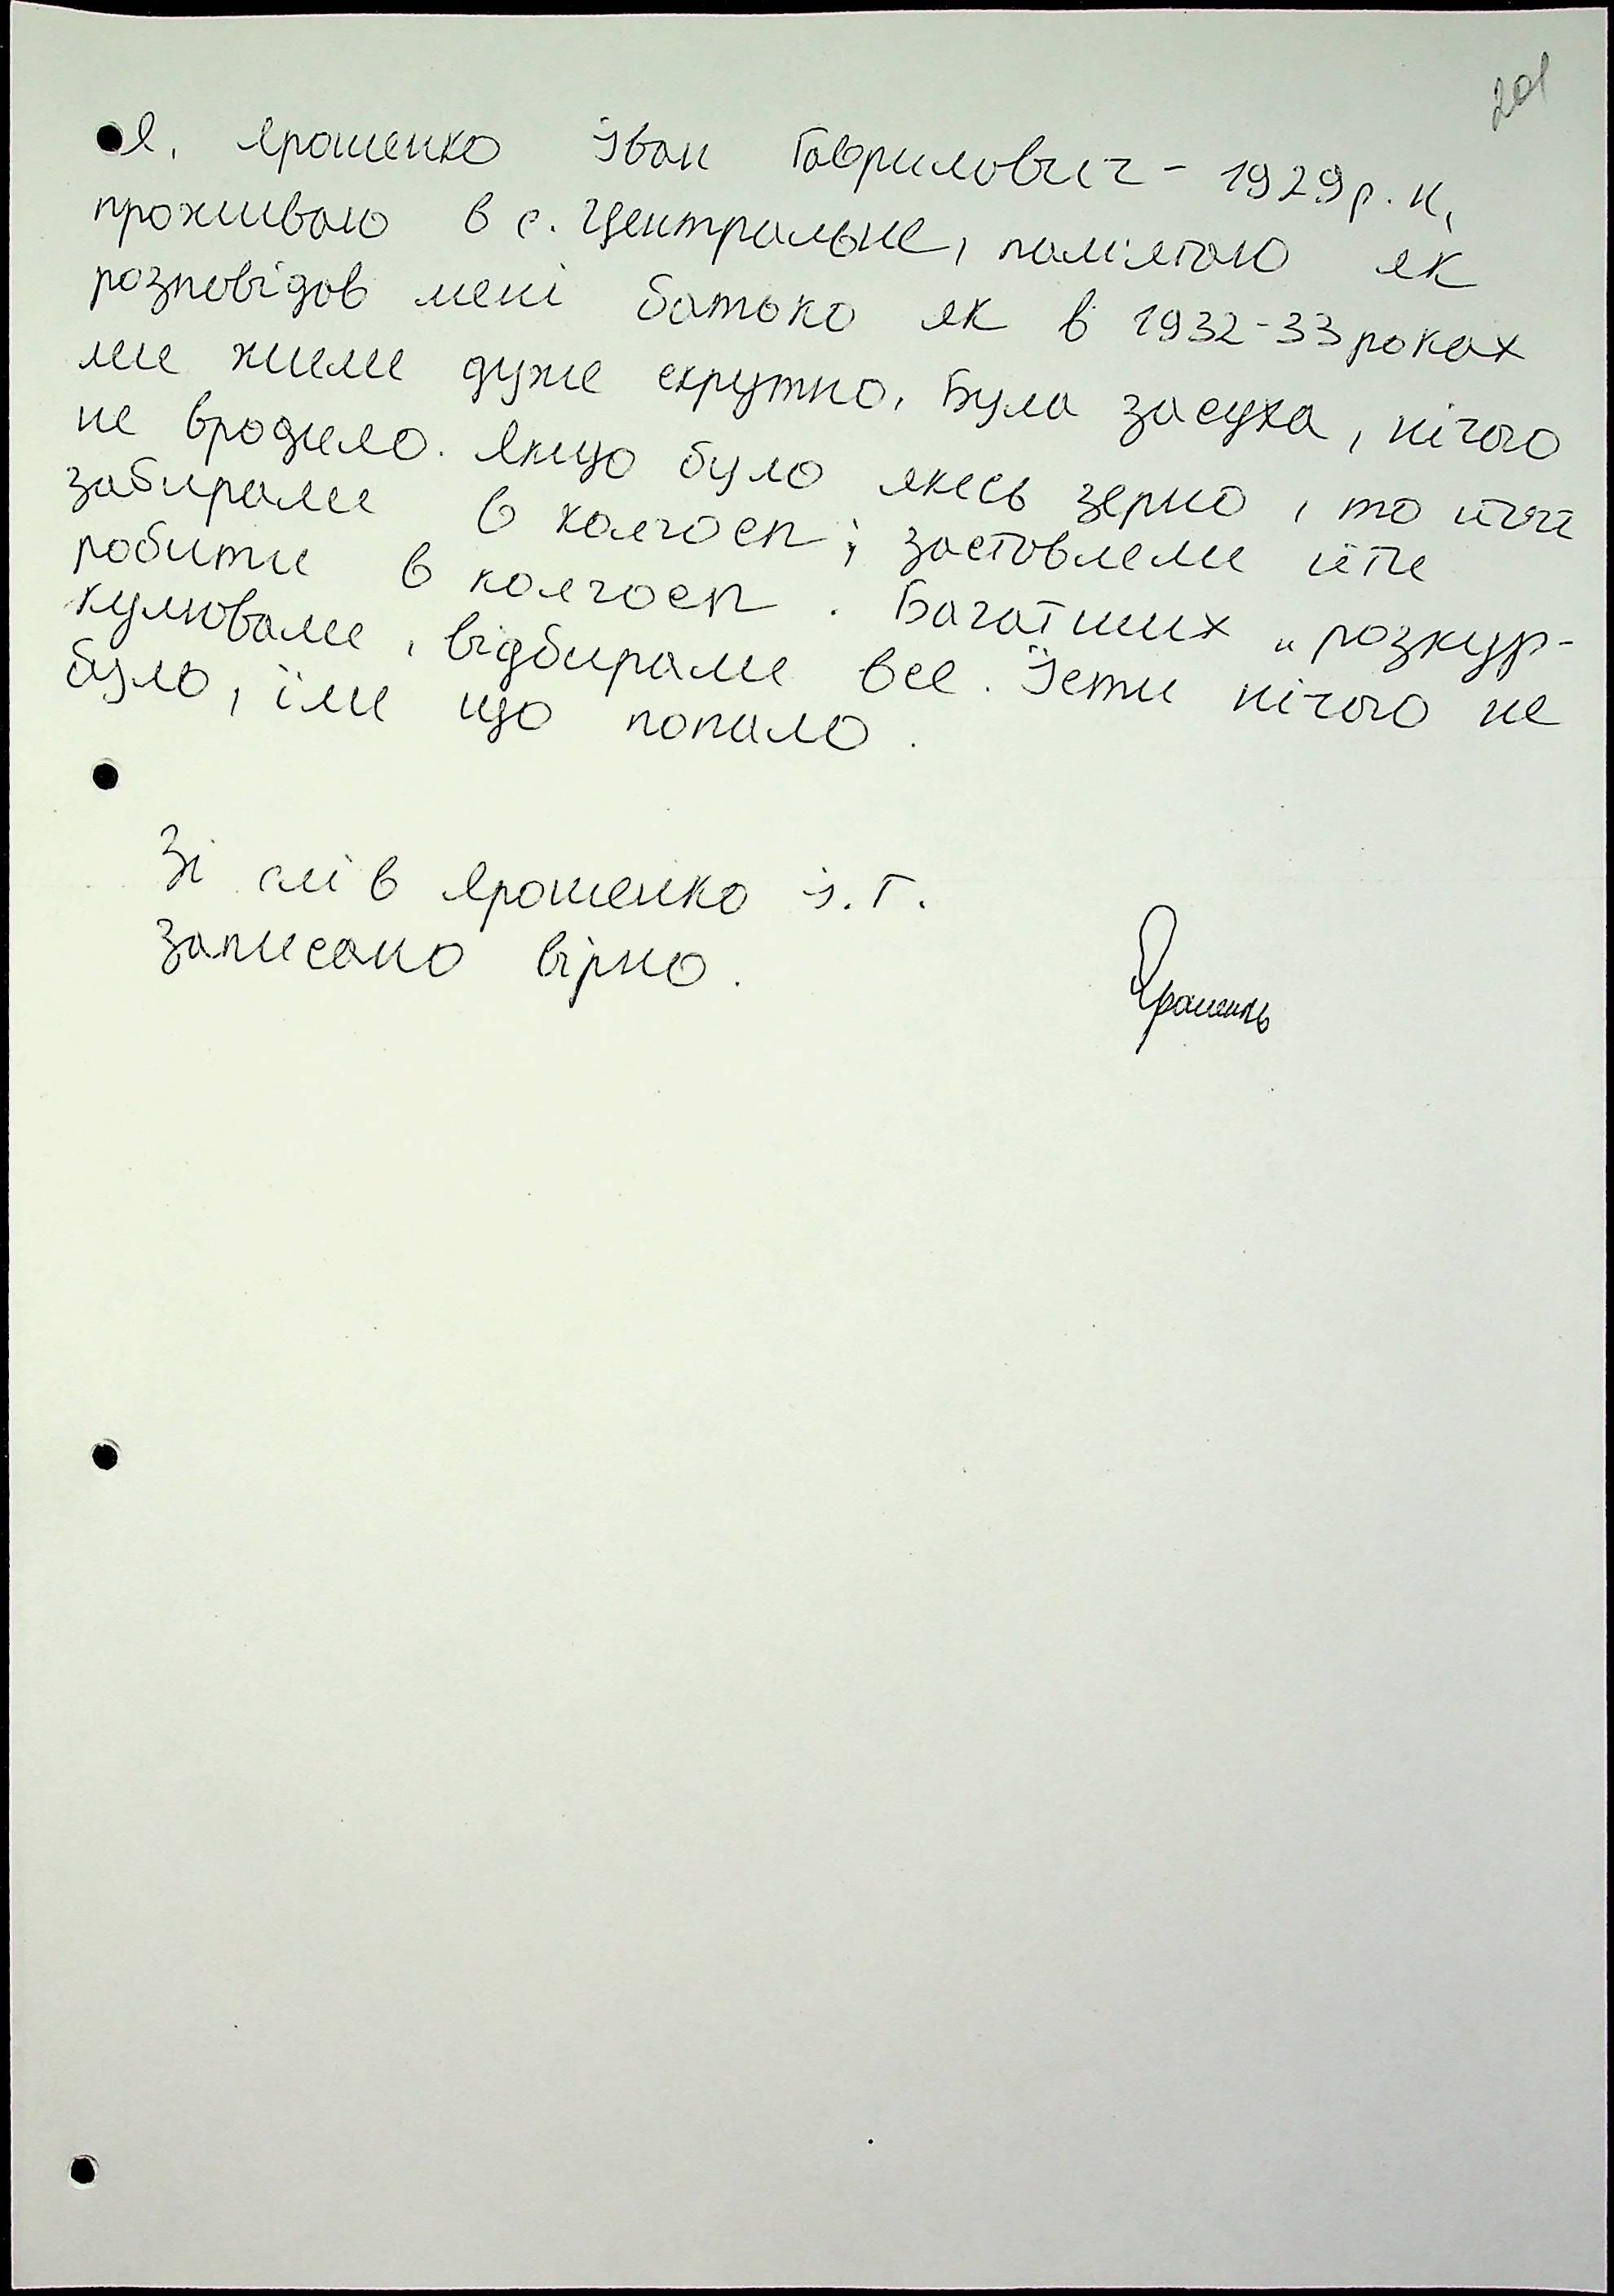 201
Я, Ярошенко Іван Гаврилович - 1929 р. н,
проживаю в с. Центральне, пам'ятаю як
розповідав мені батько як в 1932-33 роках
ми жили дуже скрутно. Була засуха, нічого
не вродило. Якщо було якесь зерно, то
забирали в колгосп; заставляли йти
робити в колгосп. Багатших „розкур-
кулювали, відбирали все. Їсти нічого не
було, їли що попало.
Зі слів Ярошенко І. Г.
записано вірно.